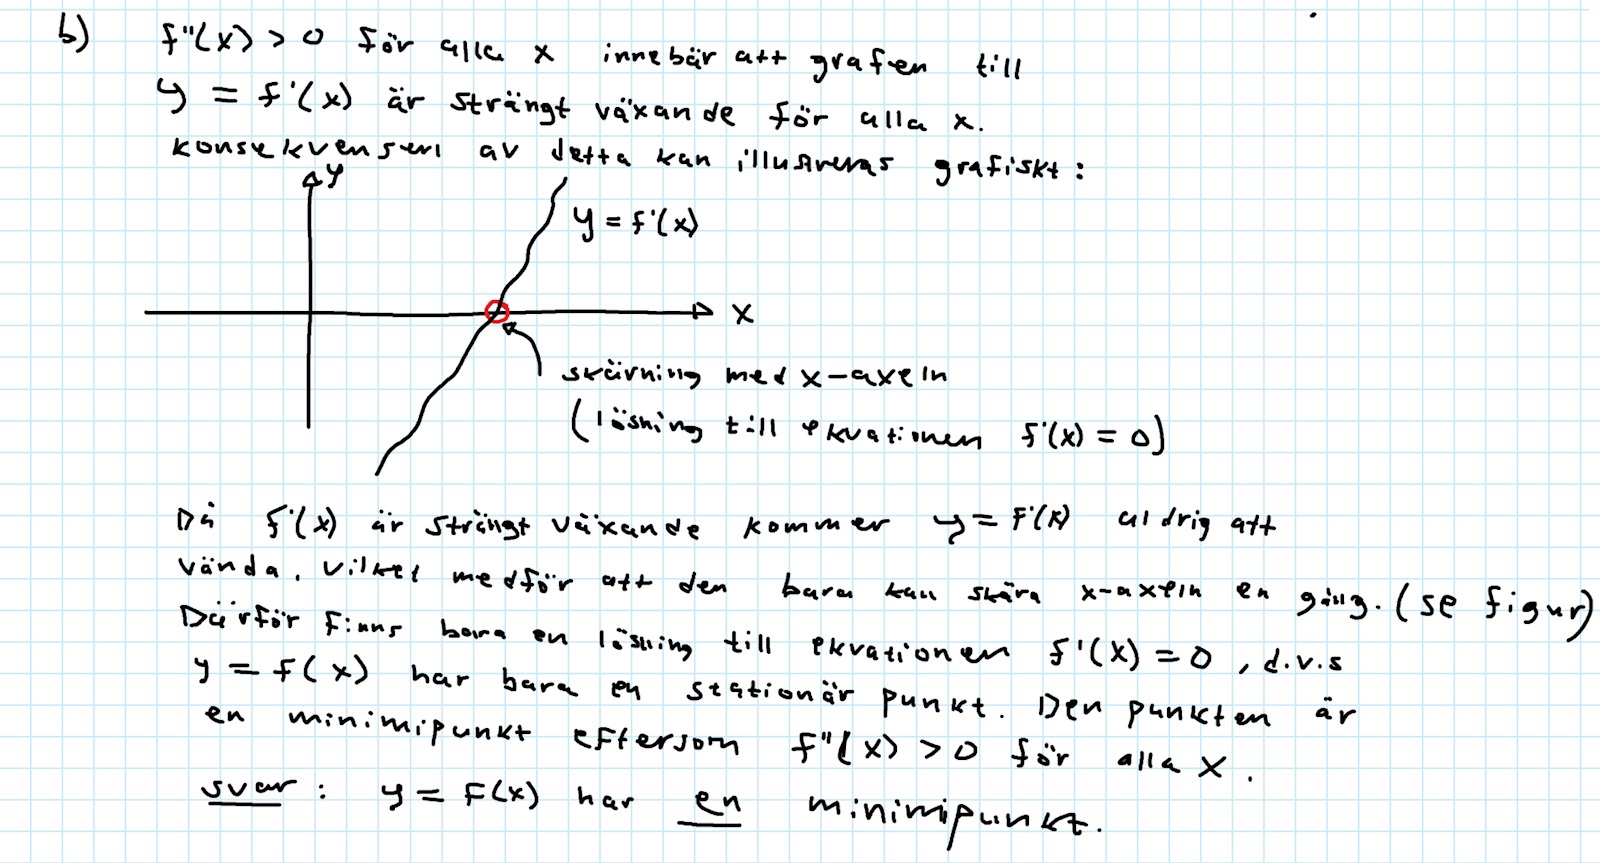 b) f''(x) > 0 för alla x innebär att grafen till
y = f'(x) är strängt växande för alla x.
konsekvensen av detta kan illustreras grafiskt:
y
y = f'(x)
x
skärning med x-axeln
(lösning till ekvationen f'(x) = 0)
Då f'(x) är strängt växande kommer y = F'(x) aldrig att
vända, vilket medför att den bara kan skära x-axeln en gång. (se figur)
Därför finns bara en lösning till ekvationen f'(x) = 0, d.v.s
y = f(x) har bara en stationär punkt. Den punkten är
en minimipunkt eftersom f''(x) > 0 för alla x.
svar: y = F(x) har en minimipunkt.